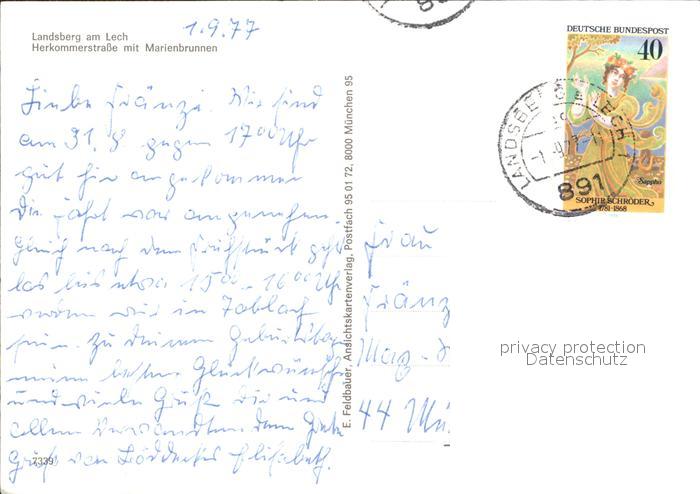 1.9.77
Landsberg am Lech
Herkommerstraße mit Marienbrunnen
Liebe Fränzi. Wir sind
am 31. 8 gegen 17 00 Uhr
gut hier angekommen
Die Fahrt war angenehm.
Gleich nach dem Frühstück geht
los bis etwa 15 00 - 16 00 Uhr
werden wir in Toblach
sein. Zu deinem Geburtstag
meine besten Glückwünsche
und viele Grüße dir und
allen Verwandten dem
Grüß von Elisabeth.
7339
E. Feldbauer, Ansichtskartenverlag, Postfach 95 01 72, 8000 München 95
DEUTSCHE BUNDESPOST
40
Sappho
SOPHIE SCHRÖDER
1781-1868
LANDSBERG a LECH
891
Frau
Fränz
May-
44 Mü
privacy protection
Datenschutz